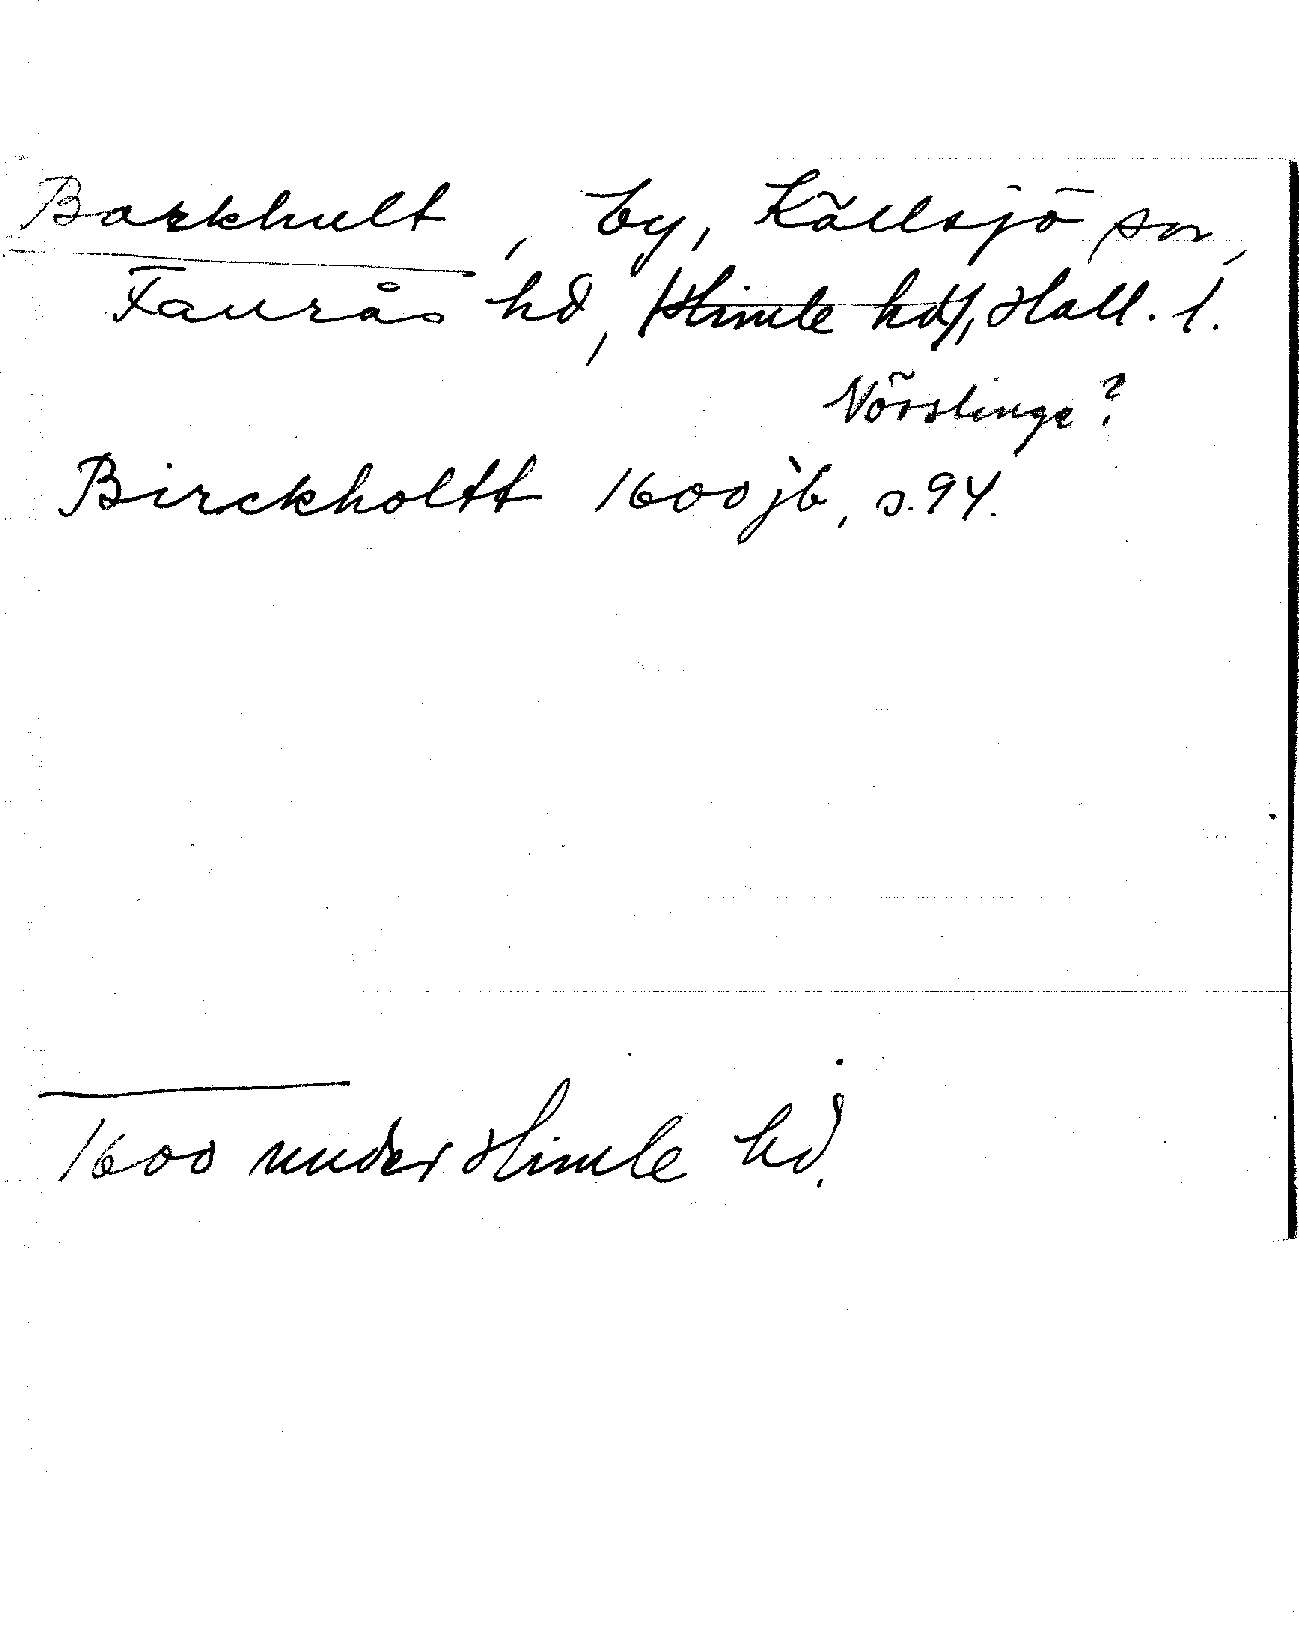 Barkhult, by, Källsjö sn,
Faurås hd, (Himle hd), Hall. l.
Nösslinge?
Birckholtt 1600 jb, s. 94.
1600 under Himle hd.